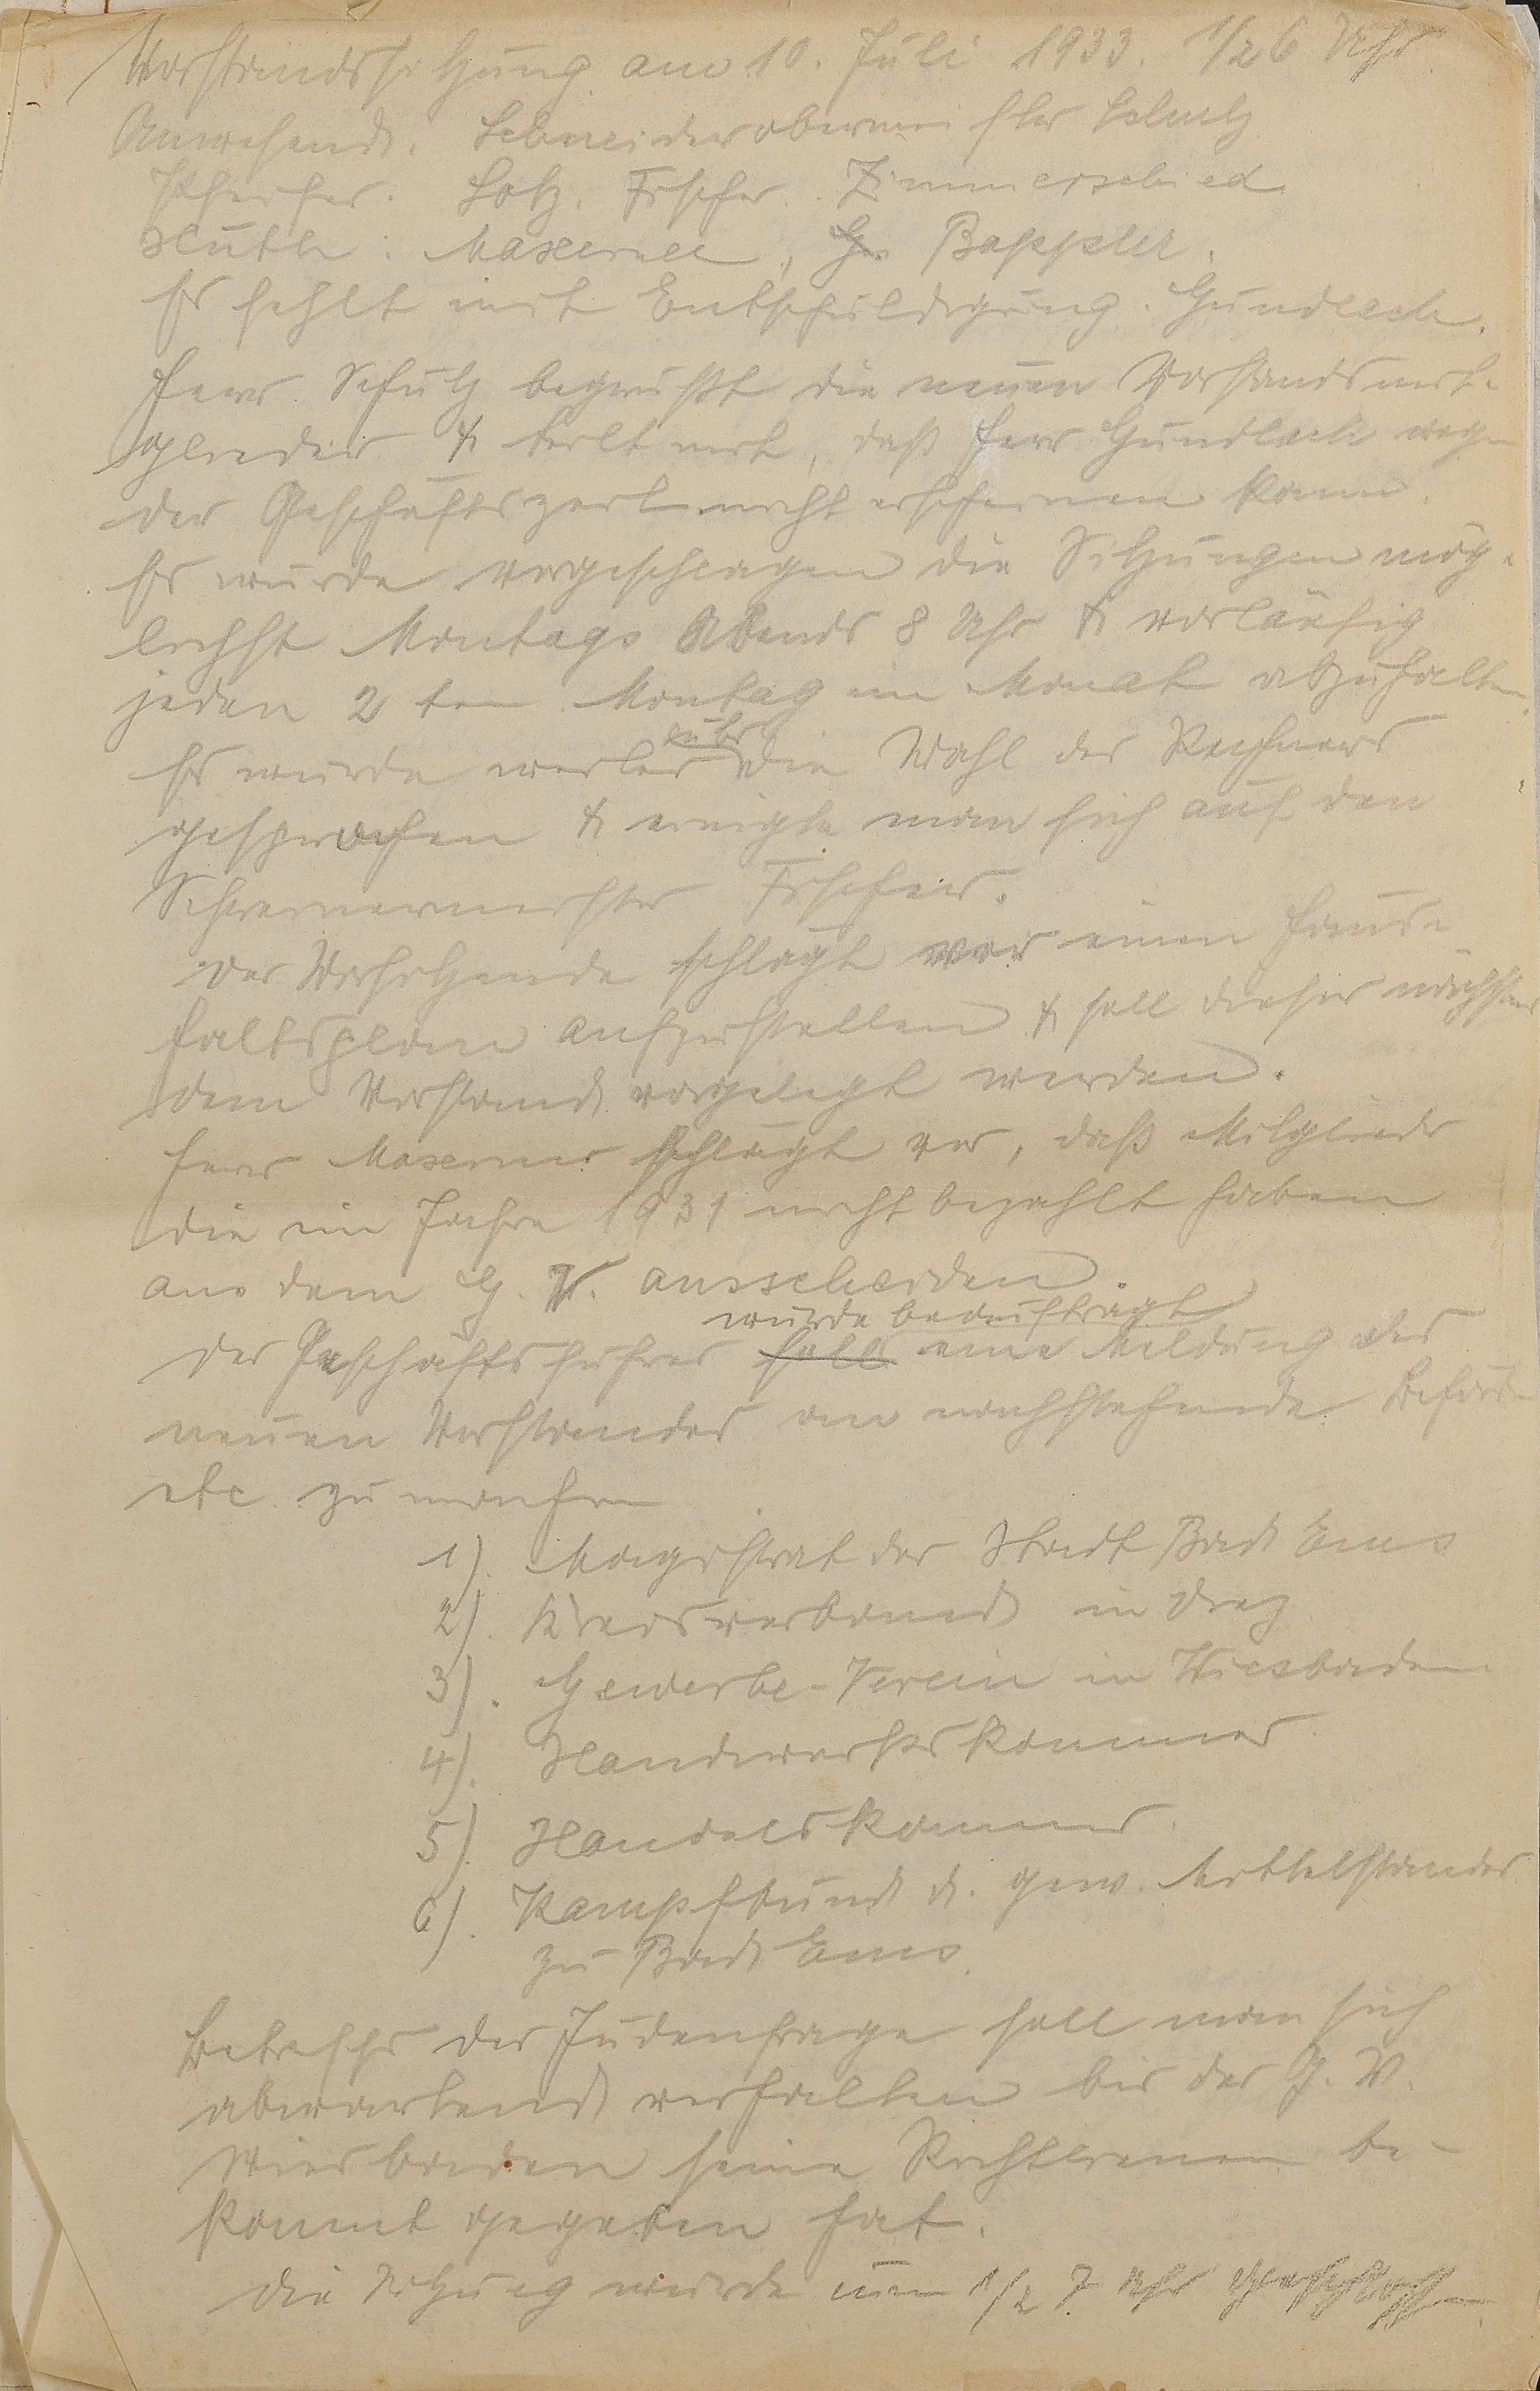 Vorstandssitzung am 10. Juli 1933. 1/2 6 Uhr
Anwesend. Schneiderobermeister Schulz
Pfeifer. Lotz. Fischer. Zimmerschied
Huth. Maxeiner, Bappler.
Es fehlt mit Entschuldigung. Gundlach.
Herr Schulz begrüsst die neuen Vorstandsmit-
glieder & teilt mit, daß Herr Gundlach wegen
der Geschäftszeit nicht erscheinen kann.
Es wurde vorgeschlagen die Sitzungen mög-
lichst Montags Abends 8 Uhr & vorläufig
jeden 2 ten Montag im Monat abzuhalten.
Es wurde weiter über die Wahl des Rechners
gesprochen & einigte man sich auf den
Schreinermeister Fischer.
Der Vorsitzende schlägt vor einen Haus-
haltsplan aufzustellen & soll dieser nächstens
dem Vorstand vorgelegt werden.
Herr Maxeiner schlägt vor, daß Mitglieder
die im Jahre 1931 nicht bezahlt haben
aus dem G. V. ausscheiden.
Der Geschäftsführer soll wurde beauftragt eine Meldung des
neuen Vorstandes an nachstehende Behörden
etc. zu machen
1). Magistrat der Stadt Bad Ems
2). Kreisverband in Diez
3). Gewerbe-Verein in Wiesbaden
4). Handwerkskammer
5). Handelskammer
6). Kampfbund d. gew. Mittelstandes
zu Bad Ems.
Betreffs der Judenfrage soll man sich
abwartend verhalten bis der G. V.
Wiesbaden seine Richtlinien be-
kannt gegeben hat.
Die Sitzung wurde um 1/2 7 Uhr geschlossen